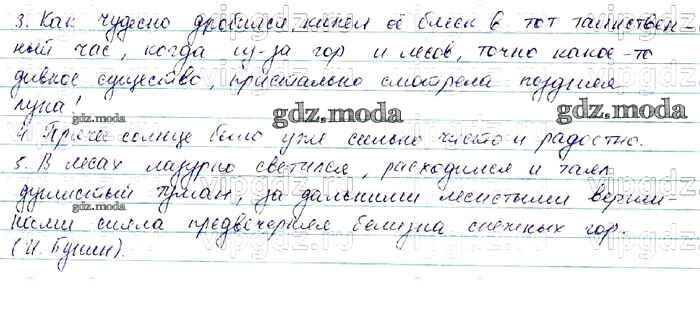 3. Как чудесно дробился, кипел её блеск в тот таинствен-
ный час, когда из-за гор и лесов, точно какое-то
дивное существо, пристально смотрела поздняя
луна!
gdz.moda gdz.moda
4. солнце было уже сильно чисто и радостно.
5. В лесах лазурно светился, расходился и таял
душистый туман, за дальними лесистыми верши-
нами сияла предвечерняя белизна снежных гор.
(И. Бунин).
gdz.moda gdz.moda